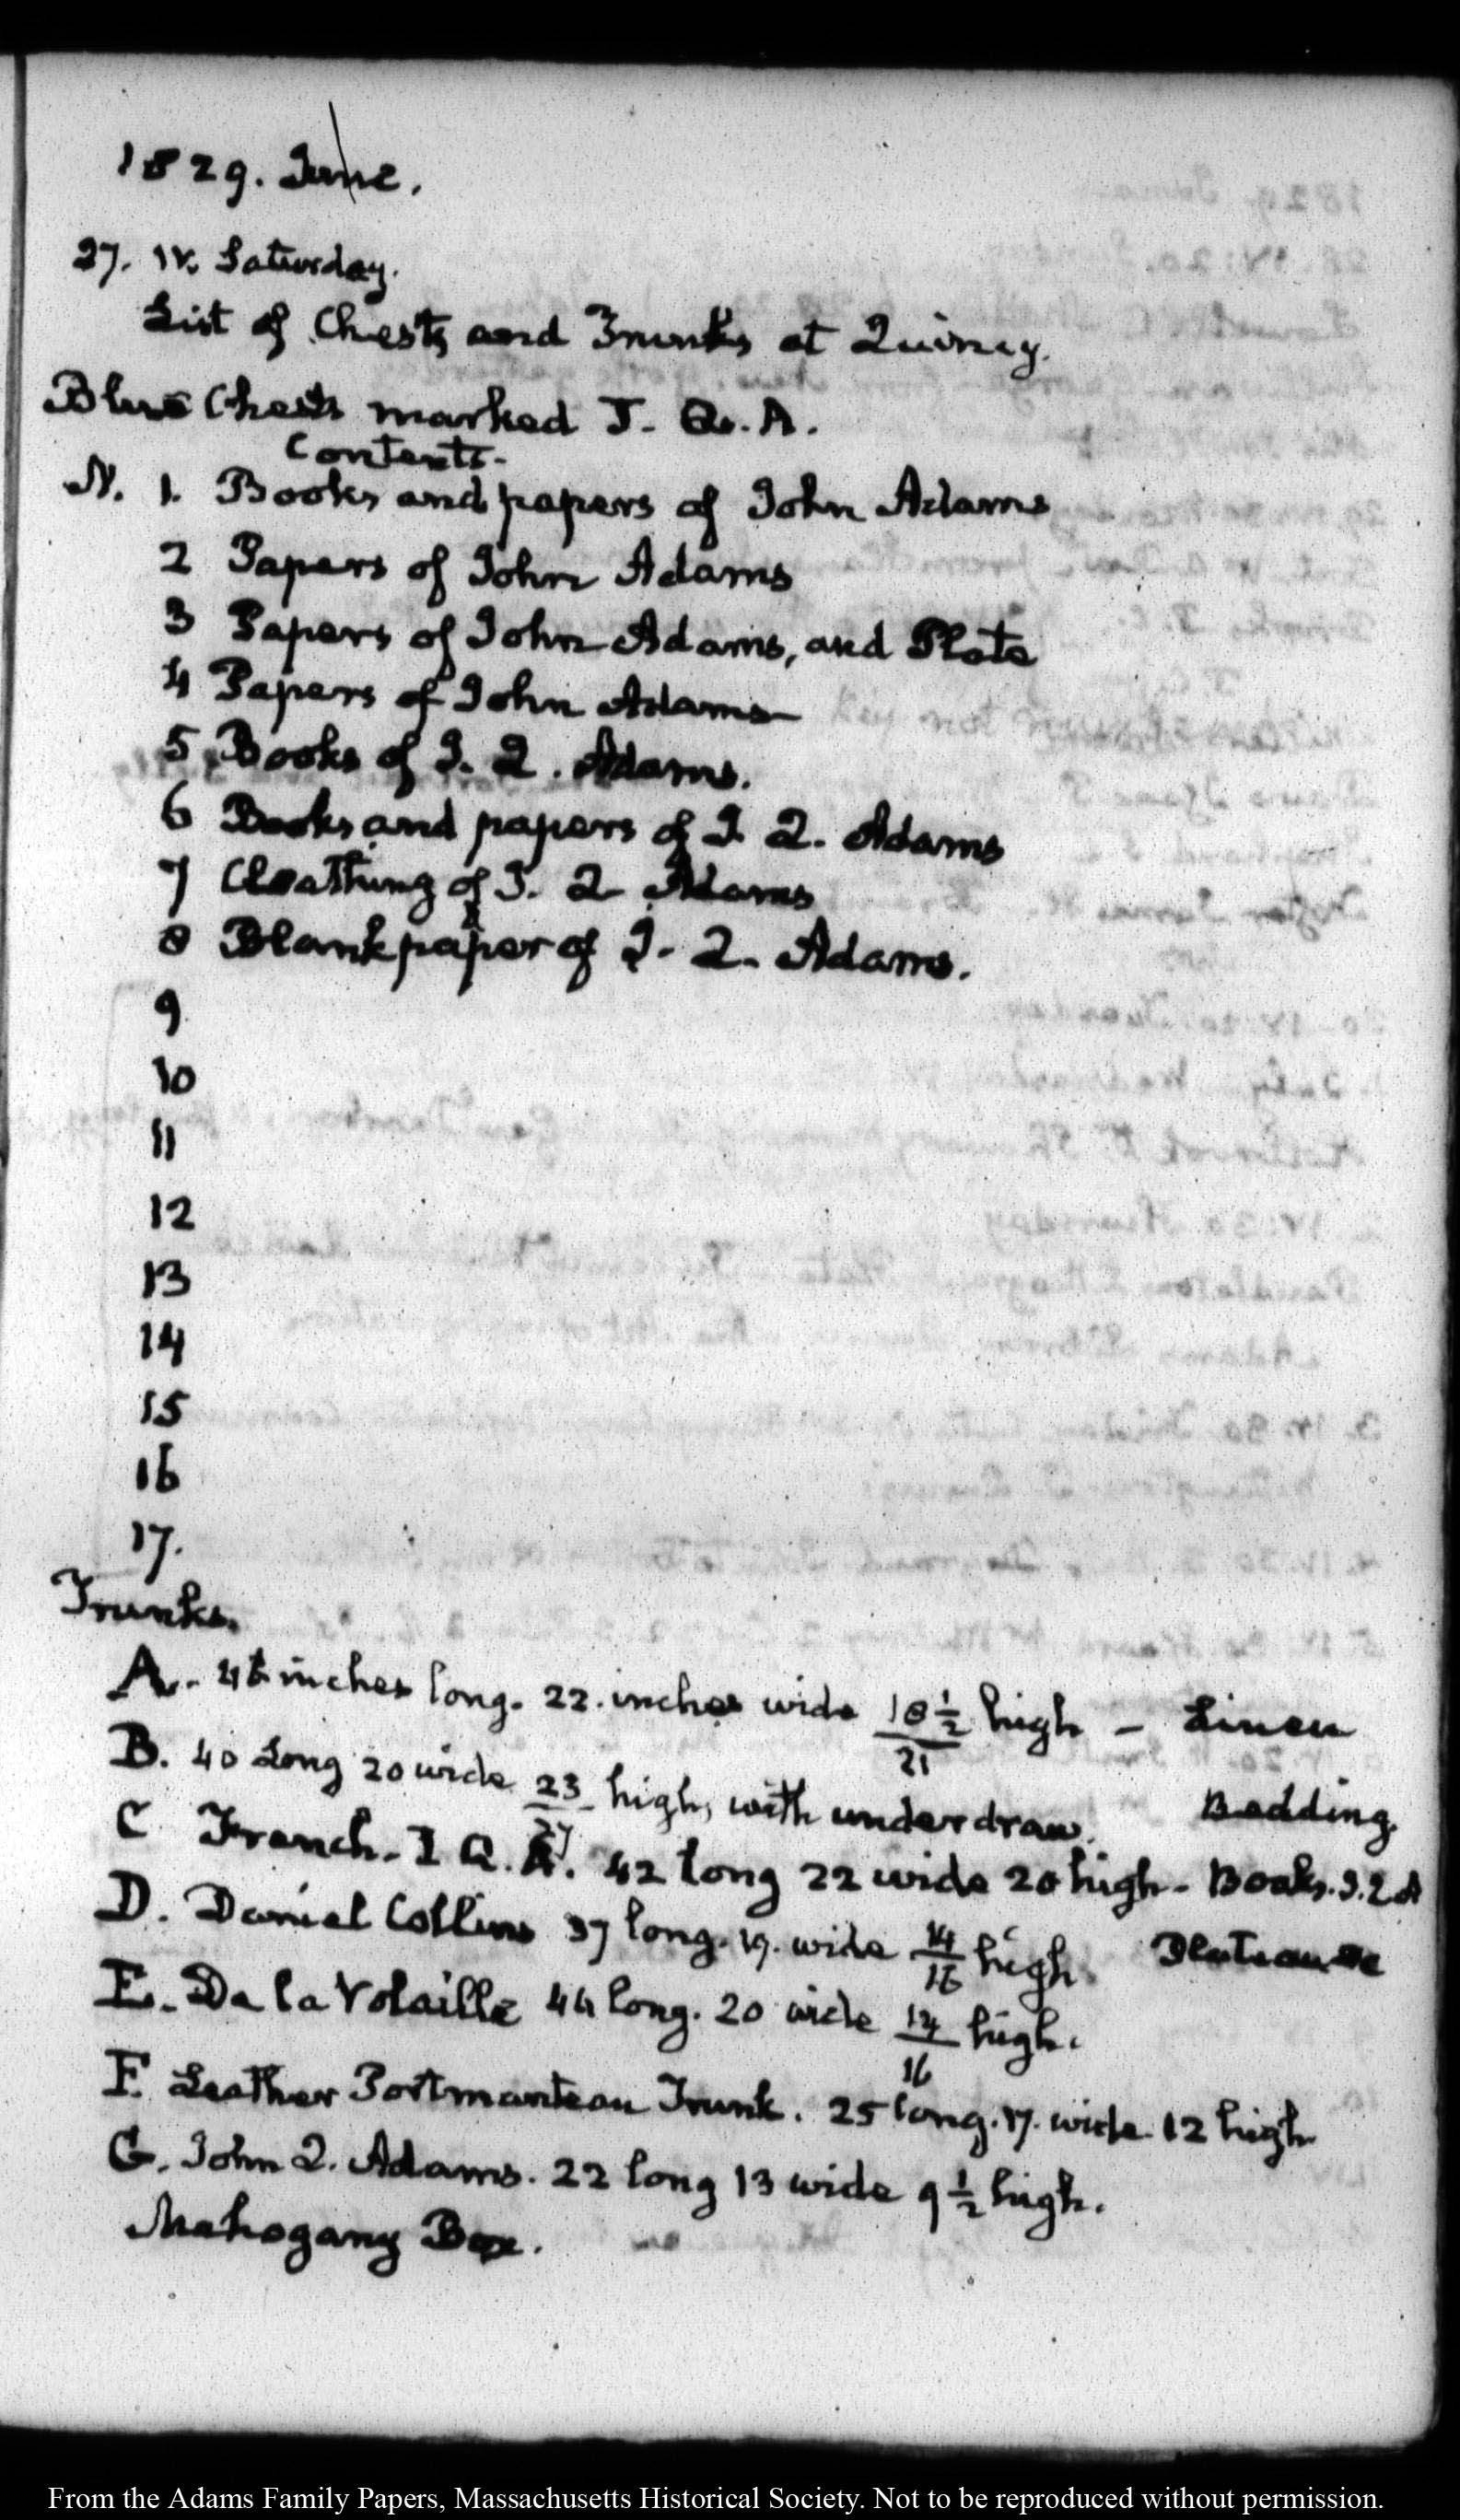 1829. June.
27. IV. Saturday.
List of Chests and Trunks at Quincy.
Blue Chests marked J. Q. A.
Contents.
N. 1. Books and papers of John Adams
2 Papers of John Adams
3 Papers of John Adams, and Plate
4 Papers of John Adams
5 Books of J. Q. Adams.
6 Books and papers of J. Q. Adams
7 Cloathing of J. Q Adams
8 Blank paper of J. Q. Adams.
9
10
11
12
13
14
15
16
17.
Trunks.
A. inches long. 22. inches wide 18½ high – Linen
21
B. 40 Long 20 wide 23 high, with underdraw. Bedding.
27
C French. I Q. A. 42 long 22 wide 20 high – Books. J. Q A
D. Daniel Collins 37 long. 19. wide 14 high.
16
E. De la Volaille 44 long. 20 wide 14 high.
16
F. Leather Portmanteau Trunk. 25 long. 17. wide. 12 high
G. John Q. Adams. 22 long 13 wide 9½ high.
Mahogany Box.
From the Adams Family Papers, Massachusetts Historical Society. Not to be reproduced without permission.